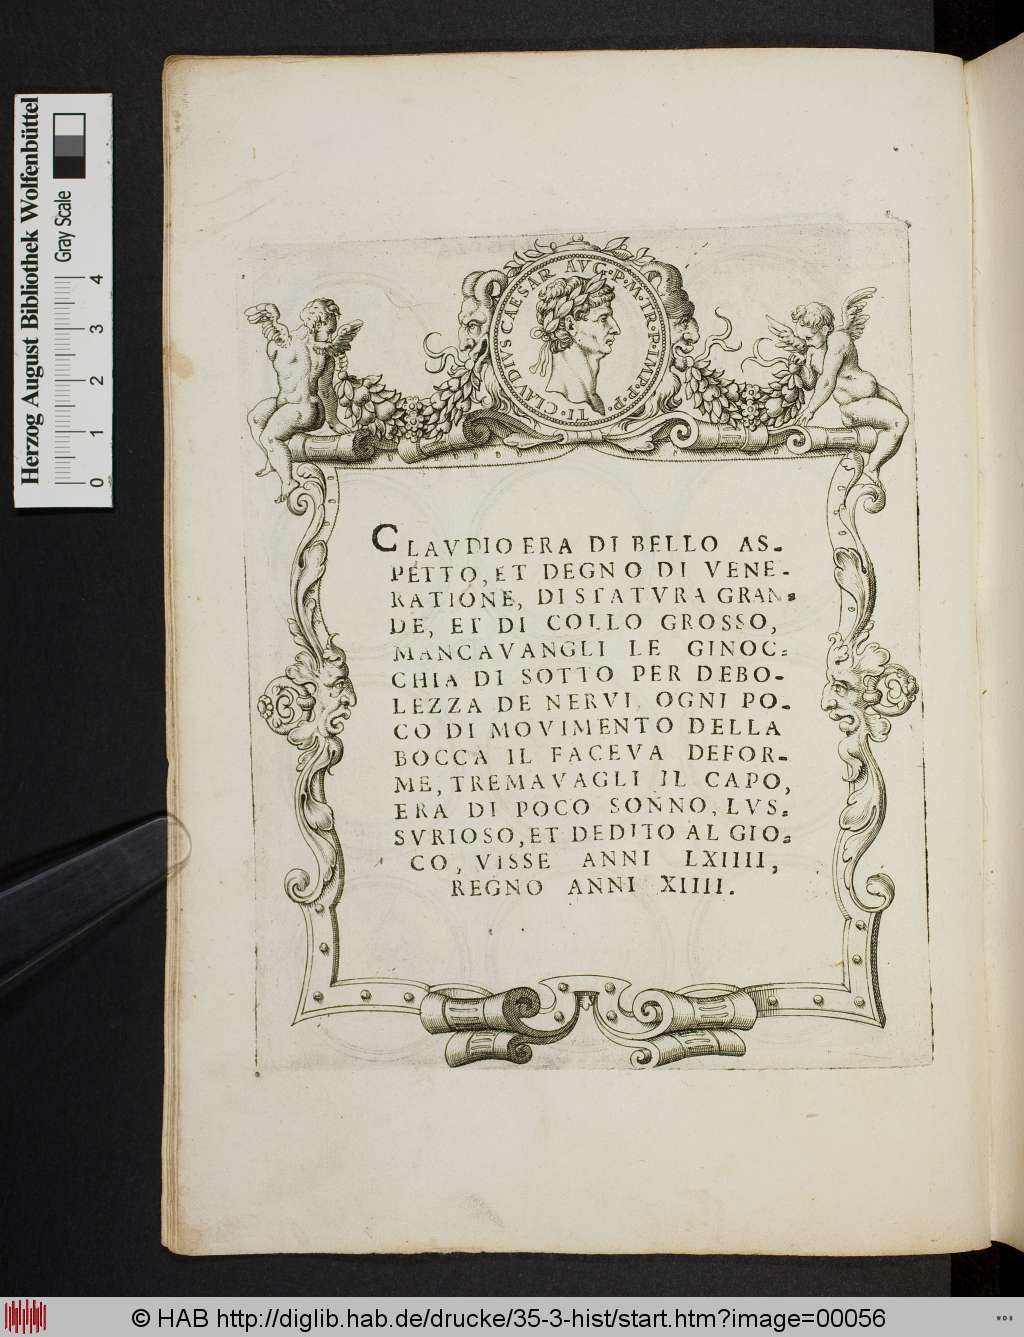 Herzog August Bibliothek Wolfenbüttel
Gray Scale
0 1 2 3 4
TI·CLAVDIVS CAESAR AVG·P·M·TR·P·IMP·P·P·
CLAVDIO ERA DI BELLO AS-
PETTO, ET DEGNO DI VENE-
RATIONE, DI STATVRA GRAN-
DE, ET DI COLLO GROSSO,
MANCAVANGLI LE GINOC-
CHIA DI SOTTO PER DEBO-
LEZZA DE NERVI, OGNI PO-
CO DI MOVIMENTO DELLA
BOCCA IL FACEVA DEFOR-
ME, TREMAVAGLI IL CAPO,
ERA DI POCO SONNO, LVS-
SVRIOSO, ET DEDITO AL GIO-
CO, VISSE ANNI LXIIII,
REGNO ANNI XIIII.
© HAB http://diglib.hab.de/drucke/35-3-hist/start.htm?image=00056